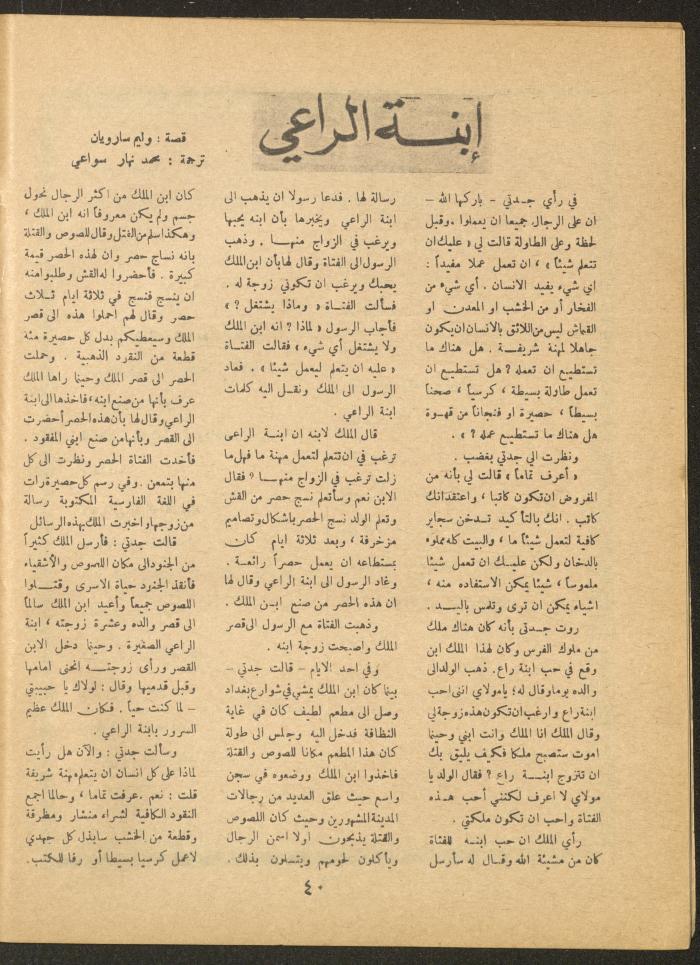 إبنة الراعي
قصة : وليم سارويان
ترجمة : محمد نهار سواعي
في رأي جدتي - باركها الله -
ان على الرجال جميعا ان يعملوا . وقبل
لحظة وعلى الطاولة قالت لي « عليك ان
تتعلم شيئاً » ، ان تعمل عملا مفيداً :
اي شيء يفيد الانسان . أي شيء من
الفخار أو من الخشب او المعدن او
القماش ليس من اللائق بالانسان ان يكون
جاهلا لمهنة شريفة . هل هناك ما
تستطيع ان تعمله ? هل تستطيع ان
تعمل طاولة بسيطة ، كرسياً ، صحناً
بسيطاً ، حصيرة او فنجاناً من قهوة
هل هناك ما تستطيع عمله ? » .
ونظرت الي جدتي بغضب .
« أعرف تماماً » قالت لي بأنه من
المفروض ان تكون كاتبا ، واعتقد انك
كاتب . انك بالتأكيد تدخن سجاير
كافية لتعمل شيئاً ما ، والبيت كله مملوء
بالدخان ولكن عليك ان تعمل شيئا
ملموساً ، شيئا يمكن الاستفاده منه ،
اشياء يمكن ان ترى وتلمس باليد .
روت جدتي بأنه كان هناك ملك
من ملوك الفرس وكان لهذا الملك ابن
وقع في حب ابنة راع . ذهب الولد الى
والده يوما وقال له : يا مولاي انني احب
ابنة راع وارغب ان تكون هذه زوجة لي
وقال الملك انا الملك وانت ابني وحينما
اموت ستصبح ملكا فكيف يليق بك
ان تتزوج ابنة راع ? فقال الولد يا
مولاي لا اعرف لكنني أحب هذه
الفتاة واحب ان تكون ملكتي .
رأي الملك ان حب ابنه للفتاة
كان من مشيئة الله وقال له سأرسل
رسالة لها . فدعا رسولا ان يذهب الى
ابنة الراعي ويخبرها بأن ابنه يحبها
ويرغب في الزواج منها . وذهب
الرسول الى الفتاة وقال لها بأن ابن الملك
يحبك ويرغب ان تكوني زوجة له .
فسألت الفتاة « وماذا يشتغل ? »
فأجاب الرسول « لماذا ? انه ابن الملك
ولا يشتغل أي شيء » فقالت الفتاة
« عليه ان يتعلم ليعمل شيئا » . فعاد
الرسول الى الملك ونقل اليه كلمات
ابنة الراعي .
قال الملك لابنه ان ابنة الراعى
ترغب في ان تتعلم لتعمل مهنة ما فهل ما
زلت ترغب في الزواج منها ? فقال
الابن نعم وسأتعلم نسج حصر من القش
وتعلم الولد نسج الحصر باشكال وتصاميم
مزخرفة ، وبعد ثلاثة ايام كان
بمستطاعه ان يعمل حصراً رائعة .
وعاد الرسول الى ابنة الراعي وقال لها
ان هذه الحصر من صنع ابن الملك .
وذهبت الفتاة مع الرسول الى قصر
الملك واصبحت زوجة ابنه .
وفي احد الايام - قالت جدتي -
بينما كان ابن الملك يمشي في شوارع بغداد
وصل الى مطعم لطيف كان في غاية
النظافة فدخل اليه وجلس الى طولة
كان هذا المطعم مكانا للصوص والقتلة
فاخذوا ابن الملك ووضعوه في سجن
واسع حيث علق العديد من رجالات
المدينة المشهورين وحيث كان اللصوص
والقتلة يذبحون اولا اسمن الرجال
ويأكلون لحومهم ويتسلون بذلك .
كان ابن الملك من اكثر الرجال نحول
جسم ولم يكن معروفاً انه ابن الملك ،
وهكذا سلم من القتل وقال للصوص والقتلة
بانه نساج حصر وان لهذه الحصر قيمة
كبيرة . فأحضروا له القش وطلبوا منه
ان ينسج فنسج في ثلاثة ايام ثلاث
حصر وقال لهم احملوا هذه الى قصر
الملك وسيعطيكم بدل كل حصيرة مئة
قطعة من النقود الذهبية . وحملت
الحصر الى قصر الملك وحينما راها الملك
عرف بأنها من صنع ابنه ، فاخذها الى ابنة
الراعي وقال لها بأن هذه الحصر أحضرت
الى القصر وبأنها من صنع ابني المفقود .
فأخدت الفتاة الحصر ونظرت الى كل
منها بتمعن . وفي رسم كل حصيرة رات
في اللغة الفارسية المكتوبة رسالة
من زوجها واخبرت الملك بهذه الرسائل .
قالت جدتي : فأرسل الملك كثيراً
من الجنود الى مكان اللصوص والأشقياء
فأنقذ الجنود حياة الاسرى وقتلوا
اللصوص جميعاً وأعيد ابن الملك سالماً
الى قصر والده وعشرة زوجته ، ابنة
الراعي الصغيرة . وحينما دخل الابن
القصر ورأى زوجته انحنى امامها
وقبل قدميها وقال : لولاك يا حبيبتي
- لما كنت حياً . فكان الملك عظيم
السرور بابنة الراعي .
وسألت جدتي : والآن هل رأيت
لماذا على كل انسان ان يتعلم مهنة شريفة
قلت : نعم . عرفت تماما ، وحالما اجمع
النقود الكافية لشراء منشار ومطرقة
وقطعة من الخشب سابذل كل جهدي
لاعمل كرسيا بسيطا أو رفا للكتب .
٤٠